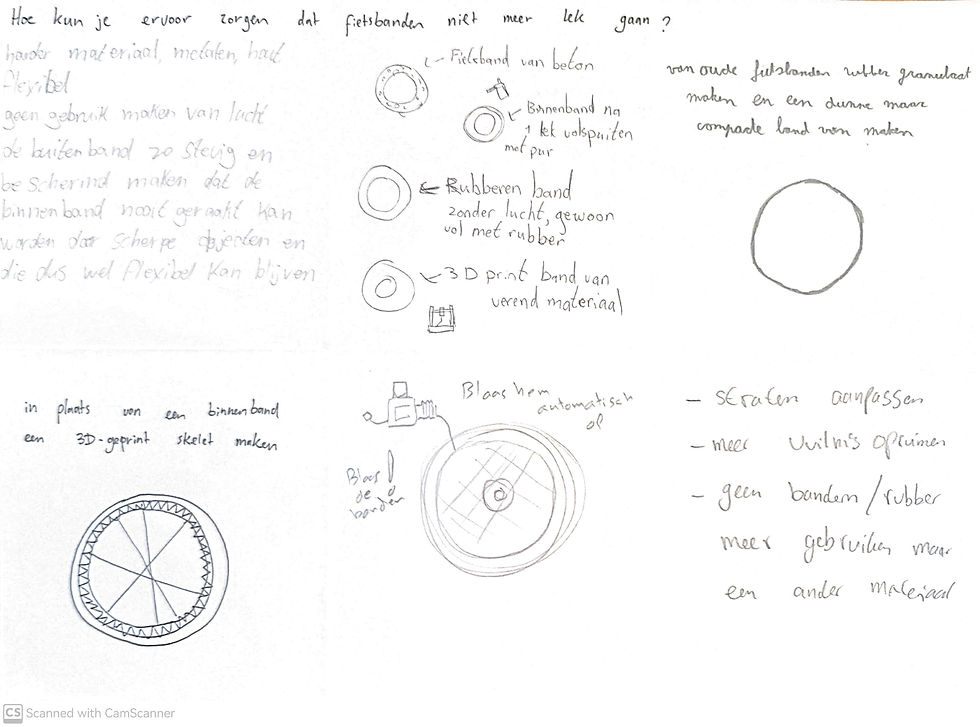 Hoe kun je ervoor zorgen dat fietsbanden niet meer lek gaan?
harder materiaal, metalen, hard
flexibel
geen gebruik maken van lucht
de buitenband zo stevig en
beschermd maken dat de
binnenband nooit geraakt kan
worden door scherpe objecten en
die dus wel flexibel kan blijven
Fietsband van beton
Binnenband na
1 lek volspuiten
met pur
Rubberen band
zonder lucht, gewoon
vol met rubber
3D print band van
verend materiaal
van oude fietsbanden rubber granulaat
maken en een dunne maar
compacte band van maken
in plaats van een binnenband
een 3D-geprint skelet maken
Blaas hem
automatisch
op
Blaas
de
banden
op
- straten aanpassen
- meer vuilnis opruimen
- geen banden/rubber
meer gebruiken maar
een ander materiaal
CS Scanned with CamScanner